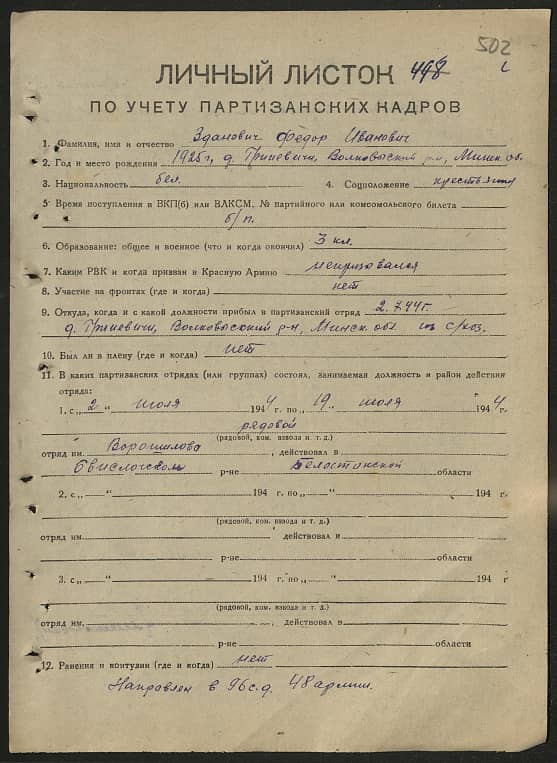 502
ЛИЧНЫЙ ЛИСТОК 498
ПО УЧЕТУ ПАРТИЗАНСКИХ КАДРОВ
1. Фамилия, имя и отчество Зданович Федор Иванович
2. Год и место рождения 1925 г, д. Гриневичи, Волковыский р-н, Минск. об.
3. Национальность бел. 4. Соцположение крестьянин
5. Время поступления в ВКП(б) или ВЛКСМ, № партийного или комсомольского билета
б/п.
6. Образование: общее и военное (что и когда окончил) 3 кл.
7. Каким РВК и когда призван в Красную Армию непризовался
8. Участие на фронтах (где и когда) нет
9. Откуда, когда и с какой должности прибыл в партизанский отряд 2.7.44г.
д. Гриневичи, Волковыский р-н, Минск. обл. из с/хоз.
10. Был ли в плену (где и когда) нет
11. В каких партизанских отрядах (или группах) состоял, занимаемая должность и район действия
отряда:
1. с „2“ июля 1944 г. по „19“ июля 1944 г.
рядовой
(рядовой, ком. взвода и т. д.)
отряд им. Ворошилова, действовал в
Свислочском р-не Белостокской области
2. с „ “ 194 г. по „ “ 194 г.
(рядовой, ком. взвода и т. д.)
отряд им. действовал и
р-не области
3. с „ “ 194 г. по „ “ 194 г
(рядовой, ком. взвода и т. д.)
отряд им. действовал в
р-не области
12. Ранения и контузии (где и когда) нет
Направлен в 96 с.д. 48 армии.